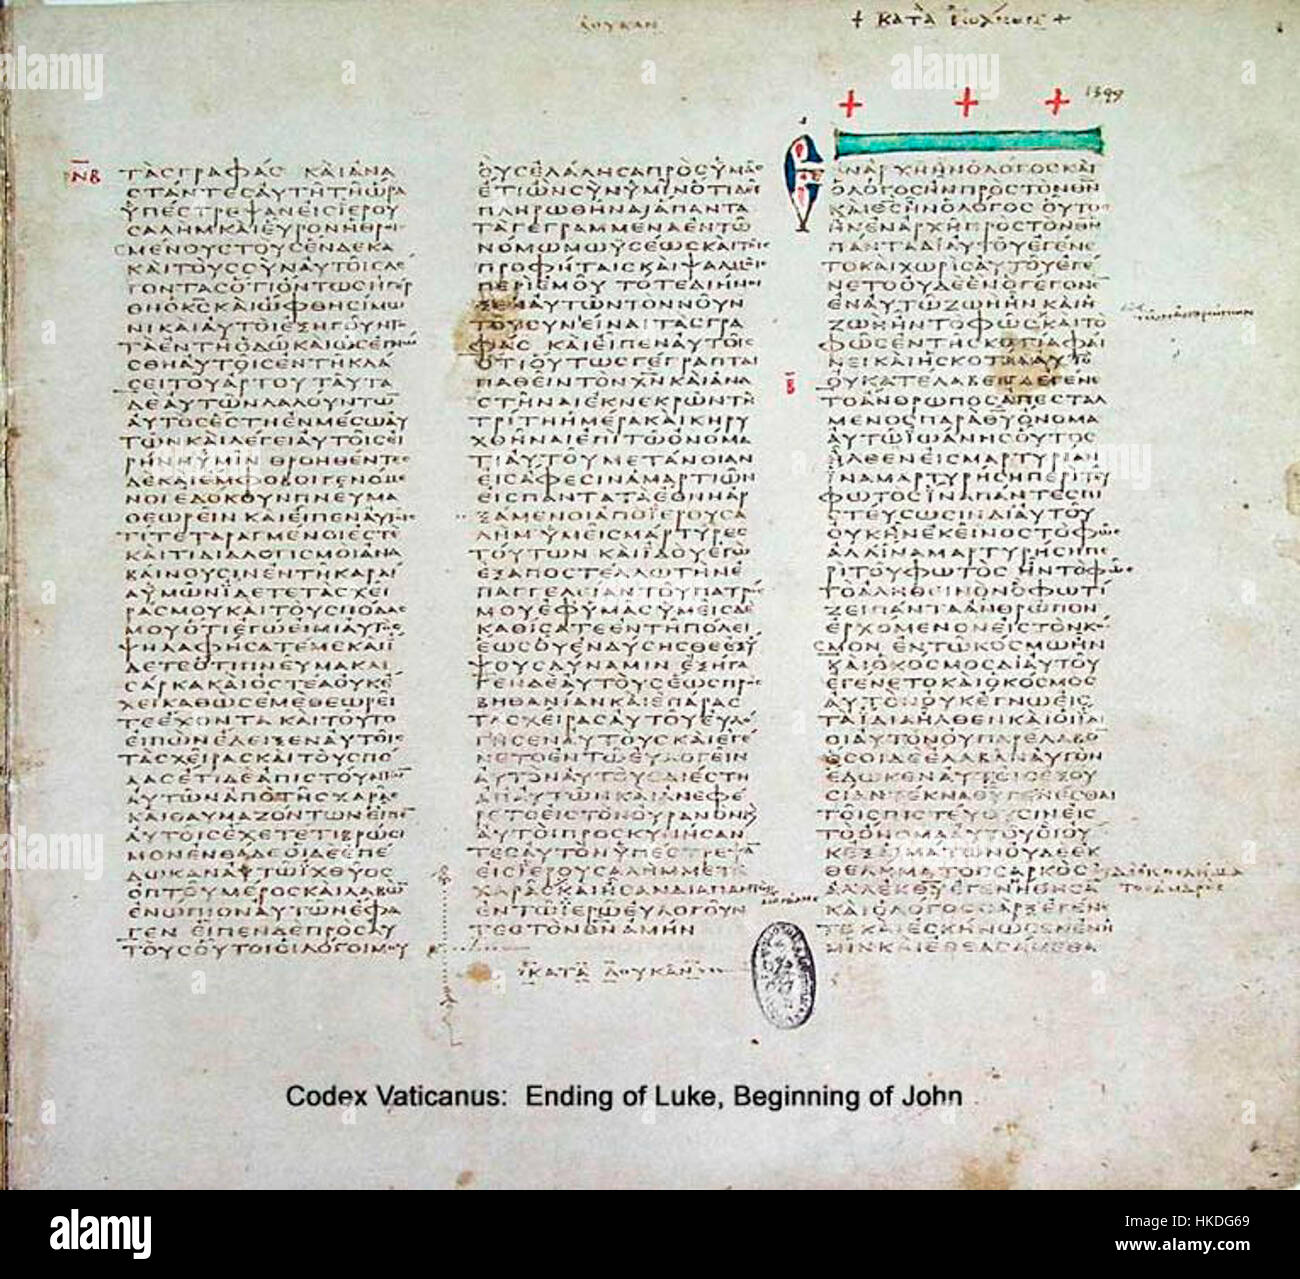 ΛΟΥΚΑΝ
+ ΚΑΤΑ ΙΩΑΝΗΝ +
1349
ΝΒ
ΤΑΣ ΓΡΑΦΑΣ ΚΑΙ ΑΝΑ
ΣΤΑΝΤΕΣ ΑΥΤΗ ΤΗ ΩΡΑ
ΥΠΕΣΤΡΕΨΑΝ ΕΙΣ ΙΕΡΟΥ
ΣΑΛΗΜ ΚΑΙ ΕΥΡΟΝ ΗΘΡΟΙ
ΣΜΕΝΟΥΣ ΤΟΥΣ ΕΝΔΕΚΑ
ΚΑΙ ΤΟΥΣ ΣΥΝ ΑΥΤΟΙΣ ΛΕ
ΓΟΝΤΑΣ ΟΤΙ ΟΝΤΩΣ ΗΓΕΡ
ΘΗ Ο ΚΣ ΚΑΙ ΩΦΘΗ ΣΙΜΩ
ΝΙ ΚΑΙ ΑΥΤΟΙ ΕΞΗΓΟΥΝΤΟ
ΤΑ ΕΝ ΤΗ ΟΔΩ ΚΑΙ ΩΣ ΕΓΝΩ
ΣΘΗ ΑΥΤΟΙΣ ΕΝ ΤΗ ΚΛΑ
ΣΕΙ ΤΟΥ ΑΡΤΟΥ ΤΑΥΤΑ
ΔΕ ΑΥΤΩΝ ΛΑΛΟΥΝΤΩ
ΑΥΤΟΣ ΕΣΤΗ ΕΝ ΜΕΣΩ ΑΥ
ΤΩΝ ΚΑΙ ΛΕΓΕΙ ΑΥΤΟΙΣ ΕΙ
ΡΗΝΗ ΥΜΙΝ ΘΡΟΗΘΕΝΤΕΣ
ΔΕ ΚΑΙ ΕΜΦΟΒΟΙ ΓΕΝΟΜΕ
ΝΟΙ ΕΔΟΚΟΥΝ ΠΝΕΥΜΑ
ΘΕΩΡΕΙΝ ΚΑΙ ΕΙΠΕΝ ΑΥΤΟΙΣ
ΤΙ ΤΕΤΑΡΑΓΜΕΝΟΙ ΕΣΤΕ
ΚΑΙ ΤΙ ΔΙΑΛΟΓΙΣΜΟΙ ΑΝΑ
ΒΑΙΝΟΥΣΙΝ ΕΝ ΤΗ ΚΑΡΔΙ
Α ΥΜΩΝ ΙΔΕΤΕ ΤΑΣ ΧΕΙ
ΡΑΣ ΜΟΥ ΚΑΙ ΤΟΥΣ ΠΟΔΑΣ
ΜΟΥ ΟΤΙ ΕΓΩ ΕΙΜΙ ΑΥΤΟΣ
ΨΗΛΑΦΗΣΑΤΕ ΜΕ ΚΑΙ Ι
ΔΕΤΕ ΟΤΙ ΠΝΕΥΜΑ ΚΑΙ
ΣΑΡΚΑ ΚΑΙ ΟΣΤΕΑ ΟΥΚ Ε
ΧΕΙ ΚΑΘΩΣ ΕΜΕ ΘΕΩΡΕΙ
ΤΕ ΕΧΟΝΤΑ ΚΑΙ ΤΟΥΤΟ
ΕΙΠΩΝ ΕΔΕΙΞΕΝ ΑΥΤΟΙΣ
ΤΑΣ ΧΕΙΡΑΣ ΚΑΙ ΤΟΥΣ ΠΟ
ΔΑΣ ΕΤΙ ΔΕ ΑΠΙΣΤΟΥΝΤΩΝ
ΑΥΤΩΝ ΑΠΟ ΤΗΣ ΧΑΡΑΣ
ΚΑΙ ΘΑΥΜΑΖΟΝΤΩΝ ΕΙΠΕ
ΑΥΤΟΙΣ ΕΧΕΤΕ ΤΙ ΒΡΩΣΙ
ΜΟΝ ΕΝΘΑΔΕ ΟΙ ΔΕ ΕΠΕ
ΔΩΚΑΝ ΑΥΤΩ ΙΧΘΥΟΣ
ΟΠΤΟΥ ΜΕΡΟΣ ΚΑΙ ΛΑΒΩ
ΕΝΩΠΙΟΝ ΑΥΤΩΝ ΕΦΑ
ΓΕΝ ΕΙΠΕΝ ΔΕ ΠΡΟΣ ΑΥ
ΤΟΥΣ ΟΥΤΟΙ ΟΙ ΛΟΓΟΙ ΜΟΥ
ΟΥΣ ΕΛΑΛΗΣΑ ΠΡΟΣ ΥΜΑΣ
ΕΤΙ ΩΝ ΣΥΝ ΥΜΙΝ ΟΤΙ ΔΕΙ
ΠΛΗΡΩΘΗΝΑΙ ΑΠΑΝΤΑ
ΤΑ ΓΕΓΡΑΜΜΕΝΑ ΕΝ ΤΩ
ΝΟΜΩ ΜΩΥΣΕΩΣ ΚΑΙ ΤΟΙΣ
ΠΡΟΦΗΤΑΙΣ ΚΑΙ ΨΑΛΜΟΙΣ
ΠΕΡΙ ΕΜΟΥ ΤΟΤΕ ΔΙΗΝΟΙ
ΞΕΝ ΑΥΤΩΝ ΤΟΝ ΝΟΥΝ
ΤΟΥ ΣΥΝΕΙΝΑΙ ΤΑΣ ΓΡΑ
ΦΑΣ ΚΑΙ ΕΙΠΕΝ ΑΥΤΟΙΣ
ΟΤΙ ΟΥΤΩΣ ΓΕΓΡΑΠΤΑΙ
ΠΑΘΕΙΝ ΤΟΝ ΧΝ ΚΑΙ ΑΝΑ
ΣΤΗΝΑΙ ΕΚ ΝΕΚΡΩΝ ΤΗ
ΤΡΙΤΗ ΗΜΕΡΑ ΚΑΙ ΚΗΡΥ
ΧΘΗΝΑΙ ΕΠΙ ΤΩ ΟΝΟΜΑ
ΤΙ ΑΥΤΟΥ ΜΕΤΑΝΟΙΑΝ
ΕΙΣ ΑΦΕΣΙΝ ΑΜΑΡΤΙΩΝ
ΕΙΣ ΠΑΝΤΑ ΤΑ ΕΘΝΗ ΑΡ
ΞΑΜΕΝΟΙ ΑΠΟ ΙΕΡΟΥΣΑ
ΛΗΜ ΥΜΕΙΣ ΜΑΡΤΥΡΕΣ
ΤΟΥΤΩΝ ΚΑΙ ΙΔΟΥ ΕΓΩ
ΕΞΑΠΟΣΤΕΛΛΩ ΤΗΝ Ε
ΠΑΓΓΕΛΕΙΑΝ ΤΟΥ ΠΑΤΡΟΣ
ΜΟΥ ΕΦ ΥΜΑΣ ΥΜΕΙΣ ΔΕ
ΚΑΘΙΣΑΤΕ ΕΝ ΤΗ ΠΟΛΕΙ
ΕΩΣ ΟΥ ΕΝΔΥΣΗΣΘΕ ΕΞ Υ
ΨΟΥΣ ΔΥΝΑΜΙΝ ΕΞΗΓΑ
ΓΕΝ ΔΕ ΑΥΤΟΥΣ ΕΩΣ ΠΡΟΣ
ΒΗΘΑΝΙΑΝ ΚΑΙ ΕΠΑΡΑΣ
ΤΑΣ ΧΕΙΡΑΣ ΑΥΤΟΥ ΕΥΛΟ
ΓΗΣΕΝ ΑΥΤΟΥΣ ΚΑΙ ΕΓΕ
ΝΕΤΟ ΕΝ ΤΩ ΕΥΛΟΓΕΙΝ
ΑΥΤΟΝ ΑΥΤΟΥΣ ΔΙΕΣΤΗ
ΑΠ ΑΥΤΩΝ ΚΑΙ ΑΝΕΦΕ
ΡΕΤΟ ΕΙΣ ΤΟΝ ΟΥΡΑΝΟΝ Κ
ΑΥΤΟΙ ΠΡΟΣΚΥΝΗΣΑΝ
ΤΕΣ ΑΥΤΟΝ ΥΠΕΣΤΡΕΨΑ
ΕΙΣ ΙΕΡΟΥΣΑΛΗΜ ΜΕΤΑ
ΧΑΡΑΣ ΚΑΙ ΗΣΑΝ ΔΙΑΠΑΝΤΟΣ
ΕΝ ΤΩ ΙΕΡΩ ΕΥΛΟΓΟΥΝ
ΤΕΣ ΤΟΝ ΘΝ ΑΜΗΝ
ΚΑΤΑ ΛΟΥΚΑΝ
Β
ΕΝ ΑΡΧΗ ΗΝ Ο ΛΟΓΟΣ ΚΑΙ
Ο ΛΟΓΟΣ ΗΝ ΠΡΟΣ ΤΟΝ ΘΝ
ΚΑΙ ΘΣ ΗΝ Ο ΛΟΓΟΣ ΟΥΤΟΣ
ΗΝ ΕΝ ΑΡΧΗ ΠΡΟΣ ΤΟΝ ΘΝ
ΠΑΝΤΑ ΔΙ ΑΥΤΟΥ ΕΓΕΝΕ
ΤΟ ΚΑΙ ΧΩΡΙΣ ΑΥΤΟΥ ΕΓΕ
ΝΕΤΟ ΟΥΔΕ ΕΝ Ο ΓΕΓΟΝΕ
ΕΝ ΑΥΤΩ ΖΩΗ ΗΝ ΚΑΙ Η
ΖΩΗ ΗΝ ΤΟ ΦΩΣ ΚΑΙ ΤΟ
ΦΩΣ ΕΝ ΤΗ ΣΚΟΤΙΑ ΦΑΙ
ΝΕΙ ΚΑΙ Η ΣΚΟΤΙΑ ΑΥΤΟ
ΟΥ ΚΑΤΕΛΑΒΕΝ ΕΓΕΝΕ
ΤΟ ΑΝΘΡΩΠΟΣ ΑΠΕΣΤΑΛ
ΜΕΝΟΣ ΠΑΡΑ ΘΥ ΟΝΟΜΑ
ΑΥΤΩ ΙΩΑΝΗΣ ΟΥΤΟΣ
ΗΛΘΕΝ ΕΙΣ ΜΑΡΤΥΡΙΑΝ
ΙΝΑ ΜΑΡΤΥΡΗΣΗ ΠΕΡΙ ΤΟΥ
ΦΩΤΟΣ ΙΝΑ ΠΑΝΤΕΣ ΠΙ
ΣΤΕΥΣΩΣΙΝ ΔΙ ΑΥΤΟΥ
ΟΥΚ ΗΝ ΕΚΕΙΝΟΣ ΤΟ ΦΩΣ
ΑΛΛ ΙΝΑ ΜΑΡΤΥΡΗΣΗ ΠΕ
ΡΙ ΤΟΥ ΦΩΤΟΣ ΗΝ ΤΟ ΦΩΣ
ΤΟ ΑΛΗΘΕΙΝΟΝ Ο ΦΩΤΙ
ΖΕΙ ΠΑΝΤΑ ΑΝΘΡΩΠΟΝ
ΕΡΧΟΜΕΝΟΝ ΕΙΣ ΤΟΝ ΚΟ
ΣΜΟΝ ΕΝ ΤΩ ΚΟΣΜΩ ΗΝ
ΚΑΙ Ο ΚΟΣΜΟΣ ΔΙ ΑΥΤΟΥ
ΕΓΕΝΕΤΟ ΚΑΙ Ο ΚΟΣΜΟΣ
ΑΥΤΟΝ ΟΥΚ ΕΓΝΩ ΕΙΣ
ΤΑ ΙΔΙΑ ΗΛΘΕΝ ΚΑΙ ΟΙ ΙΔΙ
ΟΙ ΑΥΤΟΝ ΟΥ ΠΑΡΕΛΑΒΟ
ΟΣΟΙ ΔΕ ΕΛΑΒΑΝ ΑΥΤΟΝ
ΕΔΩΚΕΝ ΑΥΤΟΙΣ ΕΞΟΥ
ΣΙΑΝ ΤΕΚΝΑ ΘΥ ΓΕΝΕΣΘΑΙ
ΤΟΙΣ ΠΙΣΤΕΥΟΥΣΙΝ ΕΙΣ
ΤΟ ΟΝΟΜΑ ΑΥΤΟΥ ΟΙ ΟΥ
Κ ΕΞ ΑΙΜΑΤΩΝ ΟΥΔΕ ΕΚ
ΘΕΛΗΜΑΤΟΣ ΣΑΡΚΟΣ
ΑΛΛ ΕΚ ΘΥ ΕΓΕΝΗΘΗΣΑ
ΚΑΙ Ο ΛΟΓΟΣ ΣΑΡΞ ΕΓΕΝΕ
ΤΟ ΚΑΙ ΕΣΚΗΝΩΣΕΝ ΕΝ Η
ΜΙΝ ΚΑΙ ΕΘΕΑΣΑΜΕΘΑ
Codex Vaticanus: Ending of Luke, Beginning of John
alamy
Image ID: HKDG69
www.alamy.com